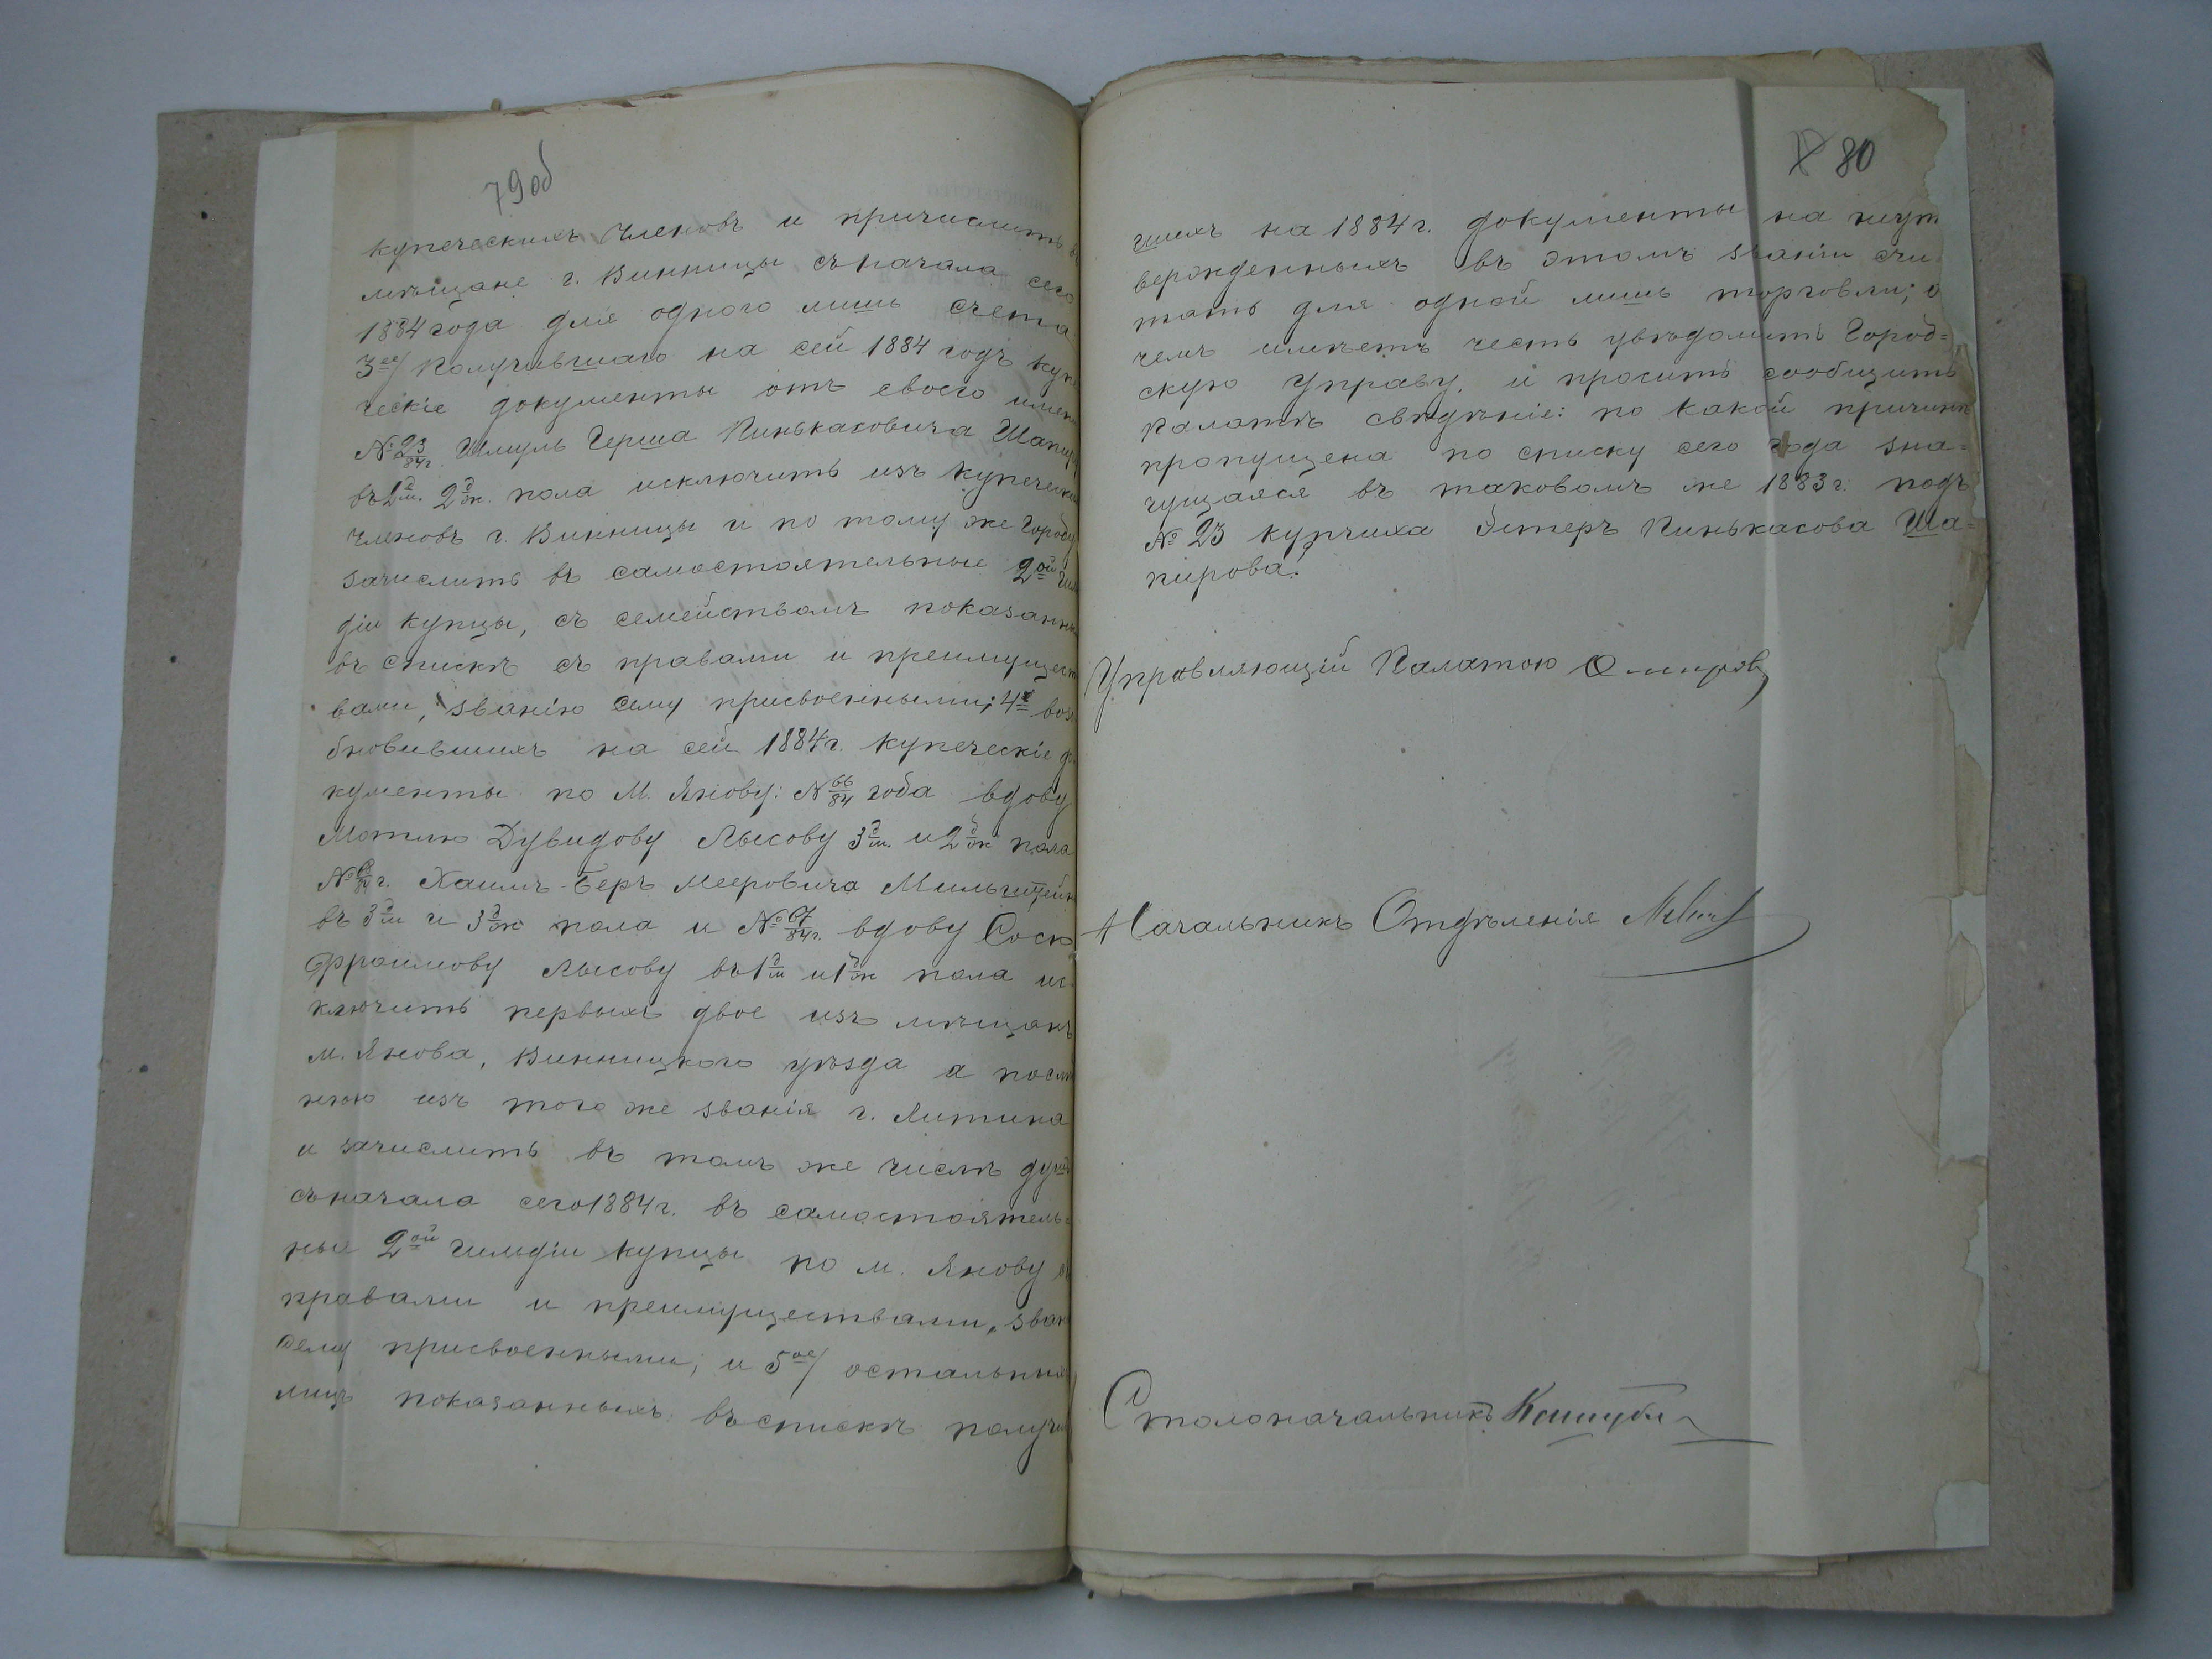 79об
купеческихъ членовъ и причислить въ
мѣщане г. Винницы съ начала сего
1884 года для одного лишь счета
3ее/ Получившаго на сей 1884 годъ купе
ческіе документы отъ своего имени
№ 23/84г. Шмуль Герша Пинькасовича Шапиру
въ 1 д/м. 2 д/ж. пола исключить изъ купеческих
членовъ г. Винницы и по тому же городу
зачислить въ самостоятельные 2ой гил
діи купцы, съ семействомъ показаннымъ
въ спискѣ съ правами и преимущест
вами, званію сему присвоенными; 4е возо
бновившихъ на сей 1884 г. купеческіе до
кументы по м. Янову: № 66/84 года вдову
Мотлю Дувидову Лысову 3 д/м. и 2 д/ж пола
г. Хаимъ-Беръ Мееровича Мильштейн
въ 3 д/м и 3 д/ж пола и № 67/84г. вдову Сосю
Фроимову Лысову въ 1 д/м и 1 д/ж пола ис
ключить первыхъ двое изъ мѣщанъ
м. Янова, Винницкаго уѣзда а послѣд
нюю изъ того же званія г. Литина
и зачислить въ томъ же числѣ душъ
съ начала сего 1884 г. въ самостоятель=
ные 2ой гильдіи купцы по м. Янову съ
правами и преимуществами, зван
сему присвоенными; и 5ое/ остальныхъ
лицъ показанныхъ въ спискѣ получи
80
вшихъ на 1884 г. документы на неут
вержденныхъ въ этомъ званіи счи
тать для одной лишь торговли; о
чемъ имѣетъ честь увѣдомить Город=
скую Управу, и проситъ сообщить
Палатѣ свѣдѣніе: по какой причинѣ
пропущена по списку сего года зна=
чущаяся въ таковомъ же 1883 г. подъ
№ 23 купчиха Эстеръ Пинькасова Ша=
пирова.
Управляющій Палатою
Начальникъ Отдѣленія
Столоначальникъ